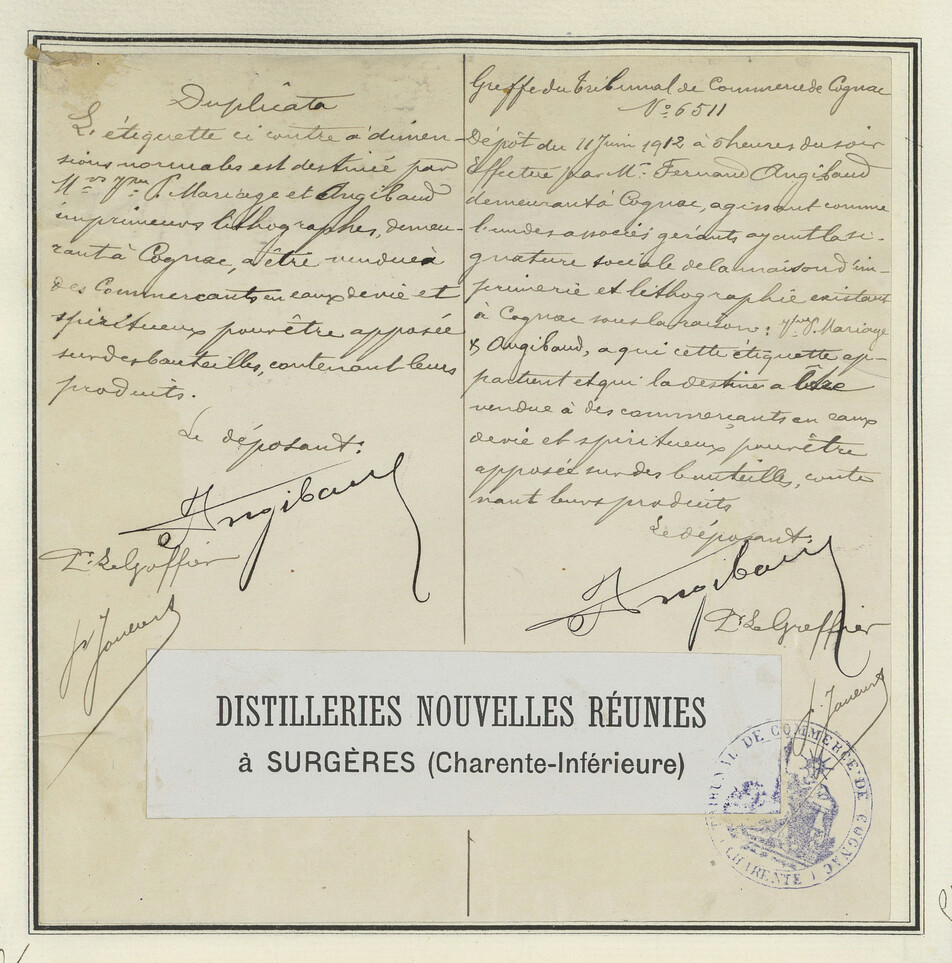 Duplicata
L'étiquette ci contre a dimen-
sions normales est destinée par
Mrs P. Mariage et Angibaud
imprimeurs lithographes, demeu-
rant à Cognac, a être vendue à
des Commerçants en eaux de vie et
spiritueux pour être apposée
sur des bouteilles, contenant leurs
produits.
Le déposant:
Angibaud
Dr. Le Greffier
Greffe du Tribunal de Commerce de Cognac
No. 6511
Dépôt du 11 Juin 1912 à 5 heures du soir
Effectué par Mr. Fernand Angibaud
demeurant à Cognac, agissant comme
l'un des associés gérants ayant la si-
gnature sociale de la maison d'im-
primerie et lithographie existant
à Cognac sous la raison: P. Mariage
& Angibaud, a qui cette étiquette ap-
partient et qui la destine a être
vendue à des commerçants en eaux
de vie et spiritueux pour être
apposée sur des bouteilles, conte
nant leurs produits
Le déposant:
Angibaud
Dr. Le Greffier
DISTILLERIES NOUVELLES RÉUNIES
à SURGÈRES (Charente-Inférieure)
TRIBUNAL DE COMMERCE DE COGNAC
(CHARENTE)